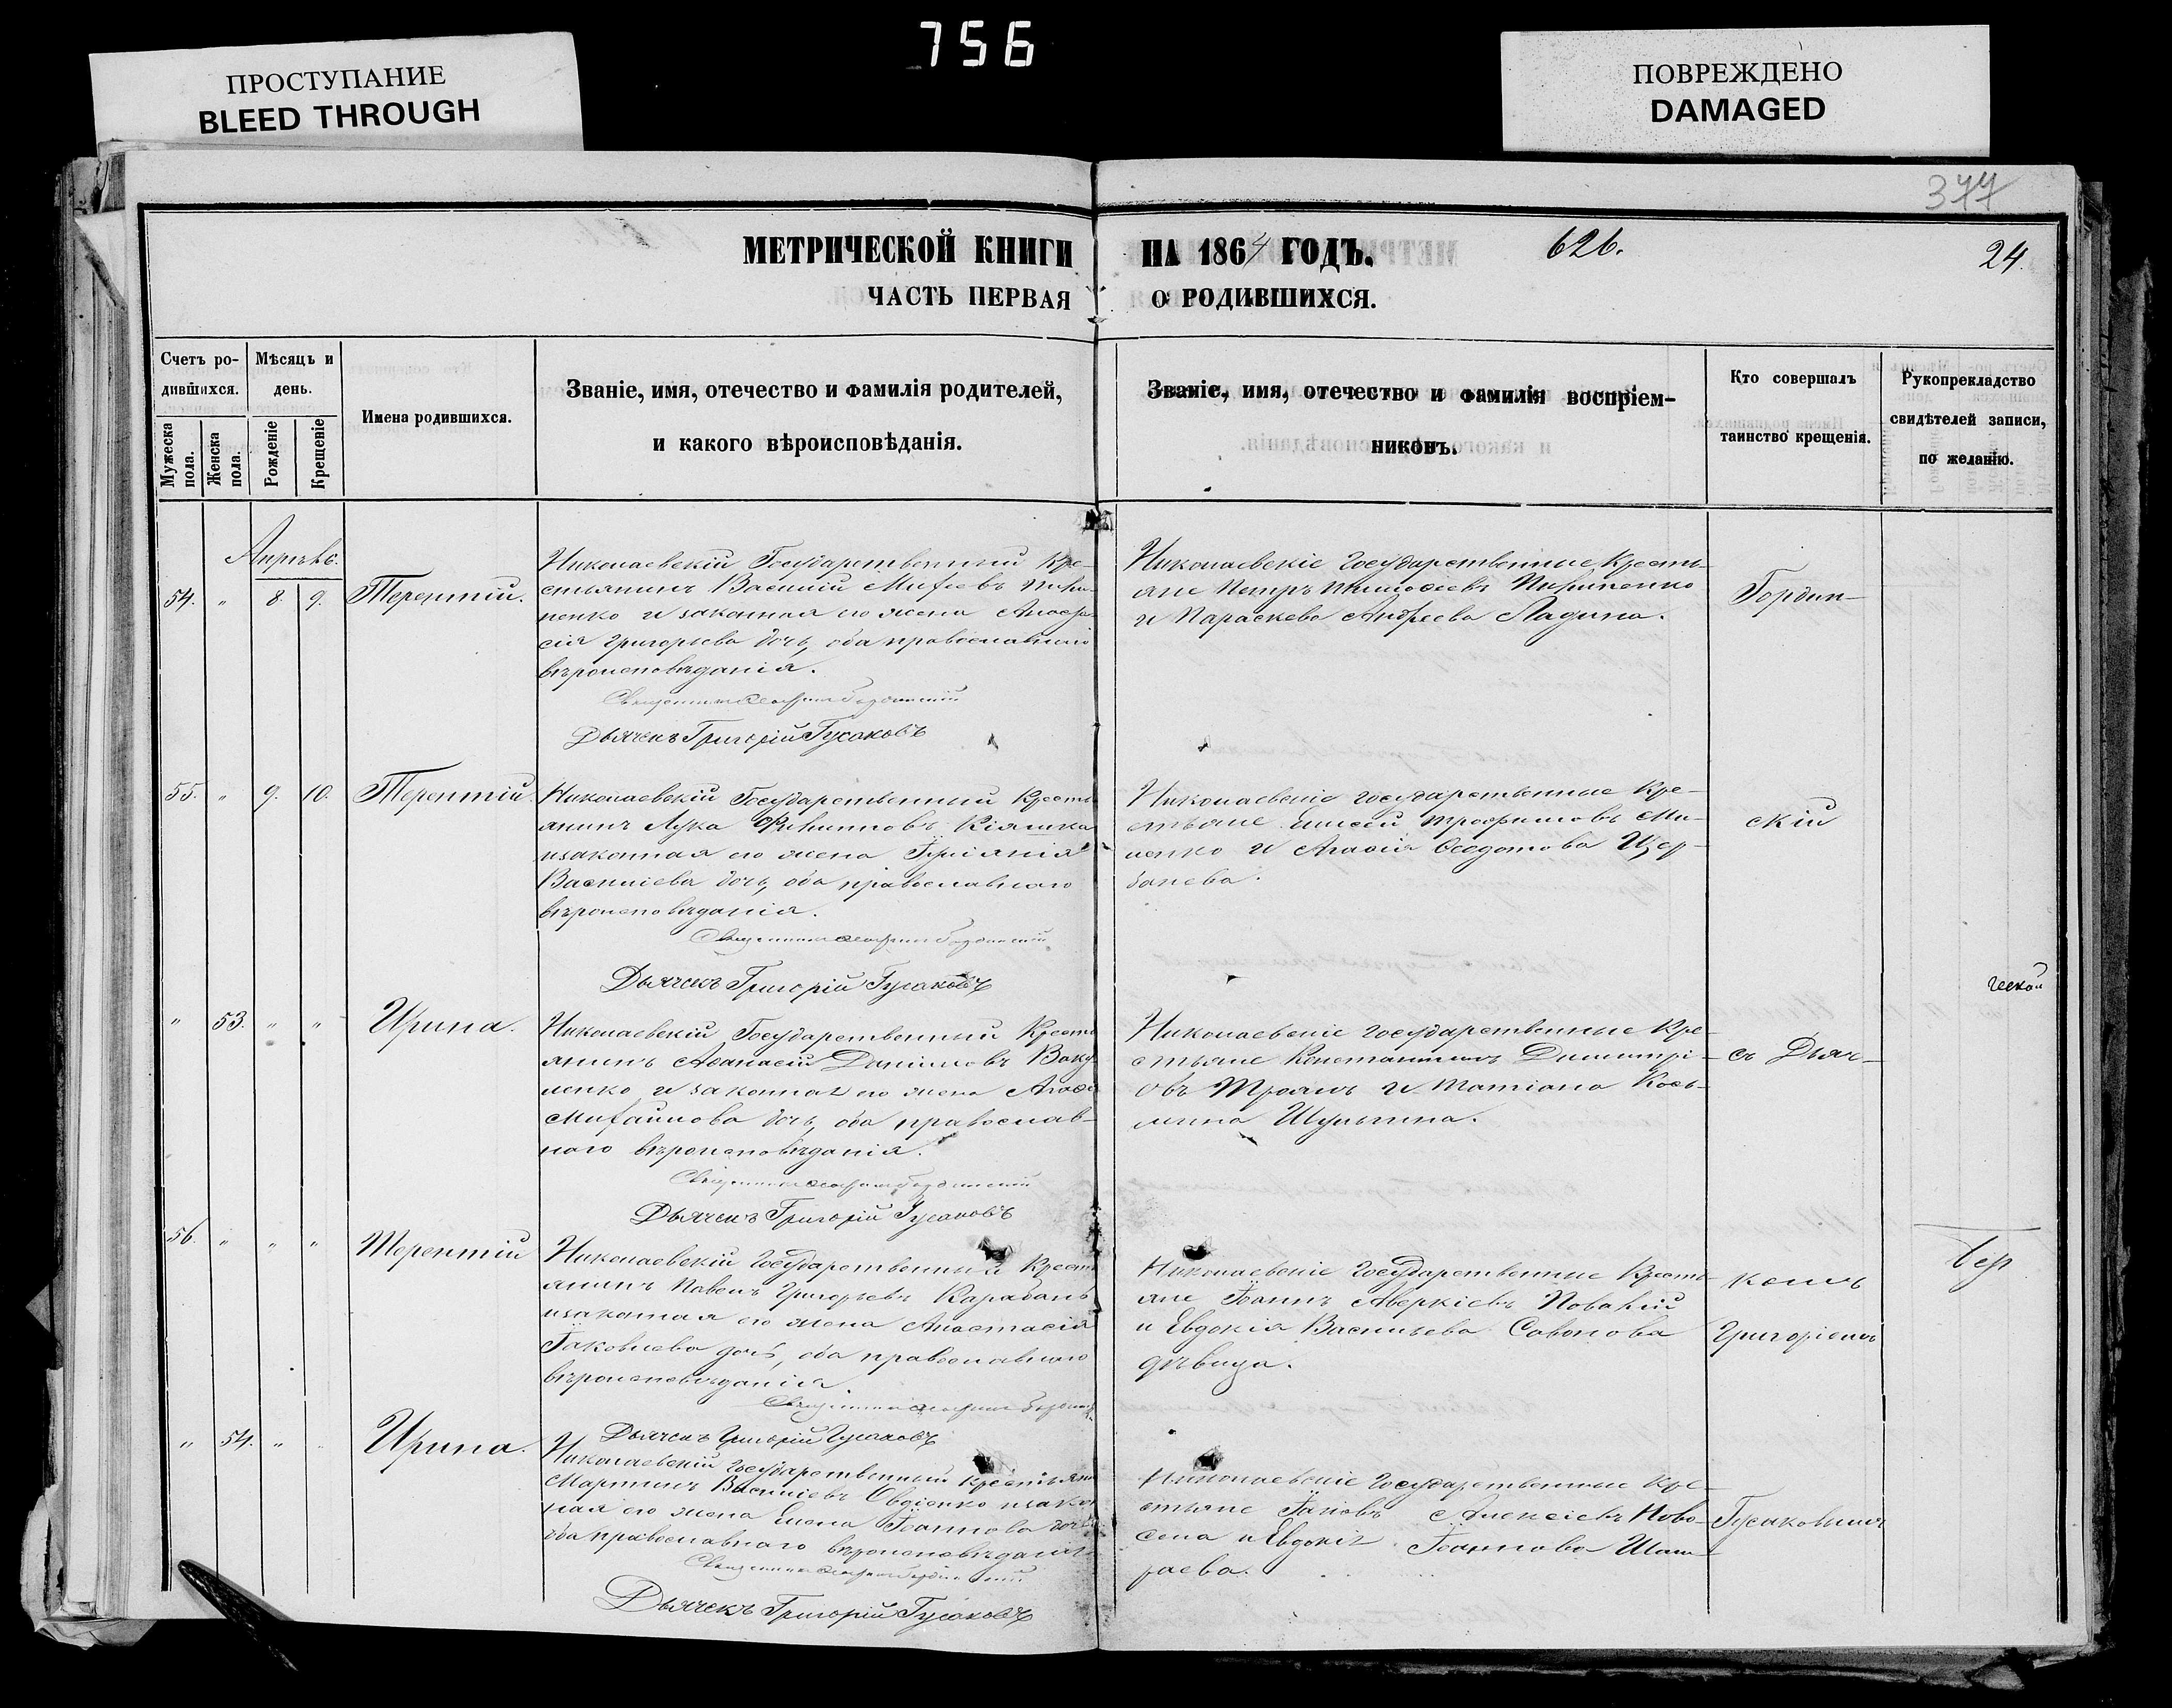 756
ПРОСТУПАНИЕ
BLEED THROUGH
ПОВРЕЖДЕНО
DAMAGED
377
МЕТРИЧЕСКОЙ КНИГИ НА 1864 ГОДЪ.
626.
24.
ЧАСТЬ ПЕРВАЯ О РОДИВШИХСЯ.
Счетъ ро-
дившихся.
Мужеска пола.
Женска пола.
Мѣсяцъ и
день.
Рожденіе
Крещеніе
Имена родившихся.
Званіе, имя, отечество и фамилія родителей,
и какого вѣроисповѣданія.
Званіе, имя, отечество и фамилія воспріем-
никовъ.
Кто совершалъ
таинство крещенія.
Рукоприкладство
свидѣтелей записи,
по желанію.
Апрѣль.
54. " 8. 9. Терентій.
Николаевскій Государственный Кре-
стьянинъ Василій Михеевъ
ненко и законная его жена
сія Григорьева дочь, оба православнаго
вѣроисповѣданія.
Дьячекъ Григорій Гусаковъ
Николаевскіе Государственные Кресть-
яне Петръ Тимофеевъ
и Параскева Андреева Ладина.
Гордин-
55. " 9. 10. Терентій.
Николаевскій Государственный Кресть
янинъ Лука Филипповъ Кіяшка
и законная его жена
Василіева дочь, оба православнаго
вѣроисповѣданія.
Дьячекъ Григорій Гусаковъ
Николаевскіе государственные Кре-
стьяне Елисей Трофимовъ Ми-
ненко и Агафія Федотова Щер-
бачева.
скій
" 53. " " Ирина.
Николаевскій Государственный Кресть
янинъ Афанасій ДаніиловъВаку
ленко и законная его жена
Михайлова дочь, оба православ-
наго вѣроисповѣданія.
Дьячекъ Григорій Гусаковъ
Николаевскіе государственные Кре-
стьяне Константинъ Димитрі-
овъ Троянъ и Татіана Кось-
мина Шульгина.
съ Дьяч-
ческой
56. " " " Терентій
Николаевскій Государственный Кресть
янинъ Павелъ Григорьевъ Карабань
и законная его жена Анастасія
Іаковлева дочь, оба православнаго
вѣроисповѣданія.
Дьячекъ Григорій Гусаковъ
Николаевскіе Государственные Кресть-
яне Іоаннъ Аверкіевъ
и Евдокія Васильева Савонова
дѣвица.
комъ
Григоріемъ
" 54. " Ирина.
Николаевскій Государственный Крестьяни
Мартинъ Василіевъ Овдіенко и закон
ная его жена Елена Іоаннова дочь
оба православнаго вѣроисповѣданія
Дьячекъ Григорій Гусаковъ
Николаевскіе Государственные Кре-
стьяне Іаковъ Алексіевъ Ново-
села и Евдокія Іоаннова Шап-
раева.
Гусаковымъ